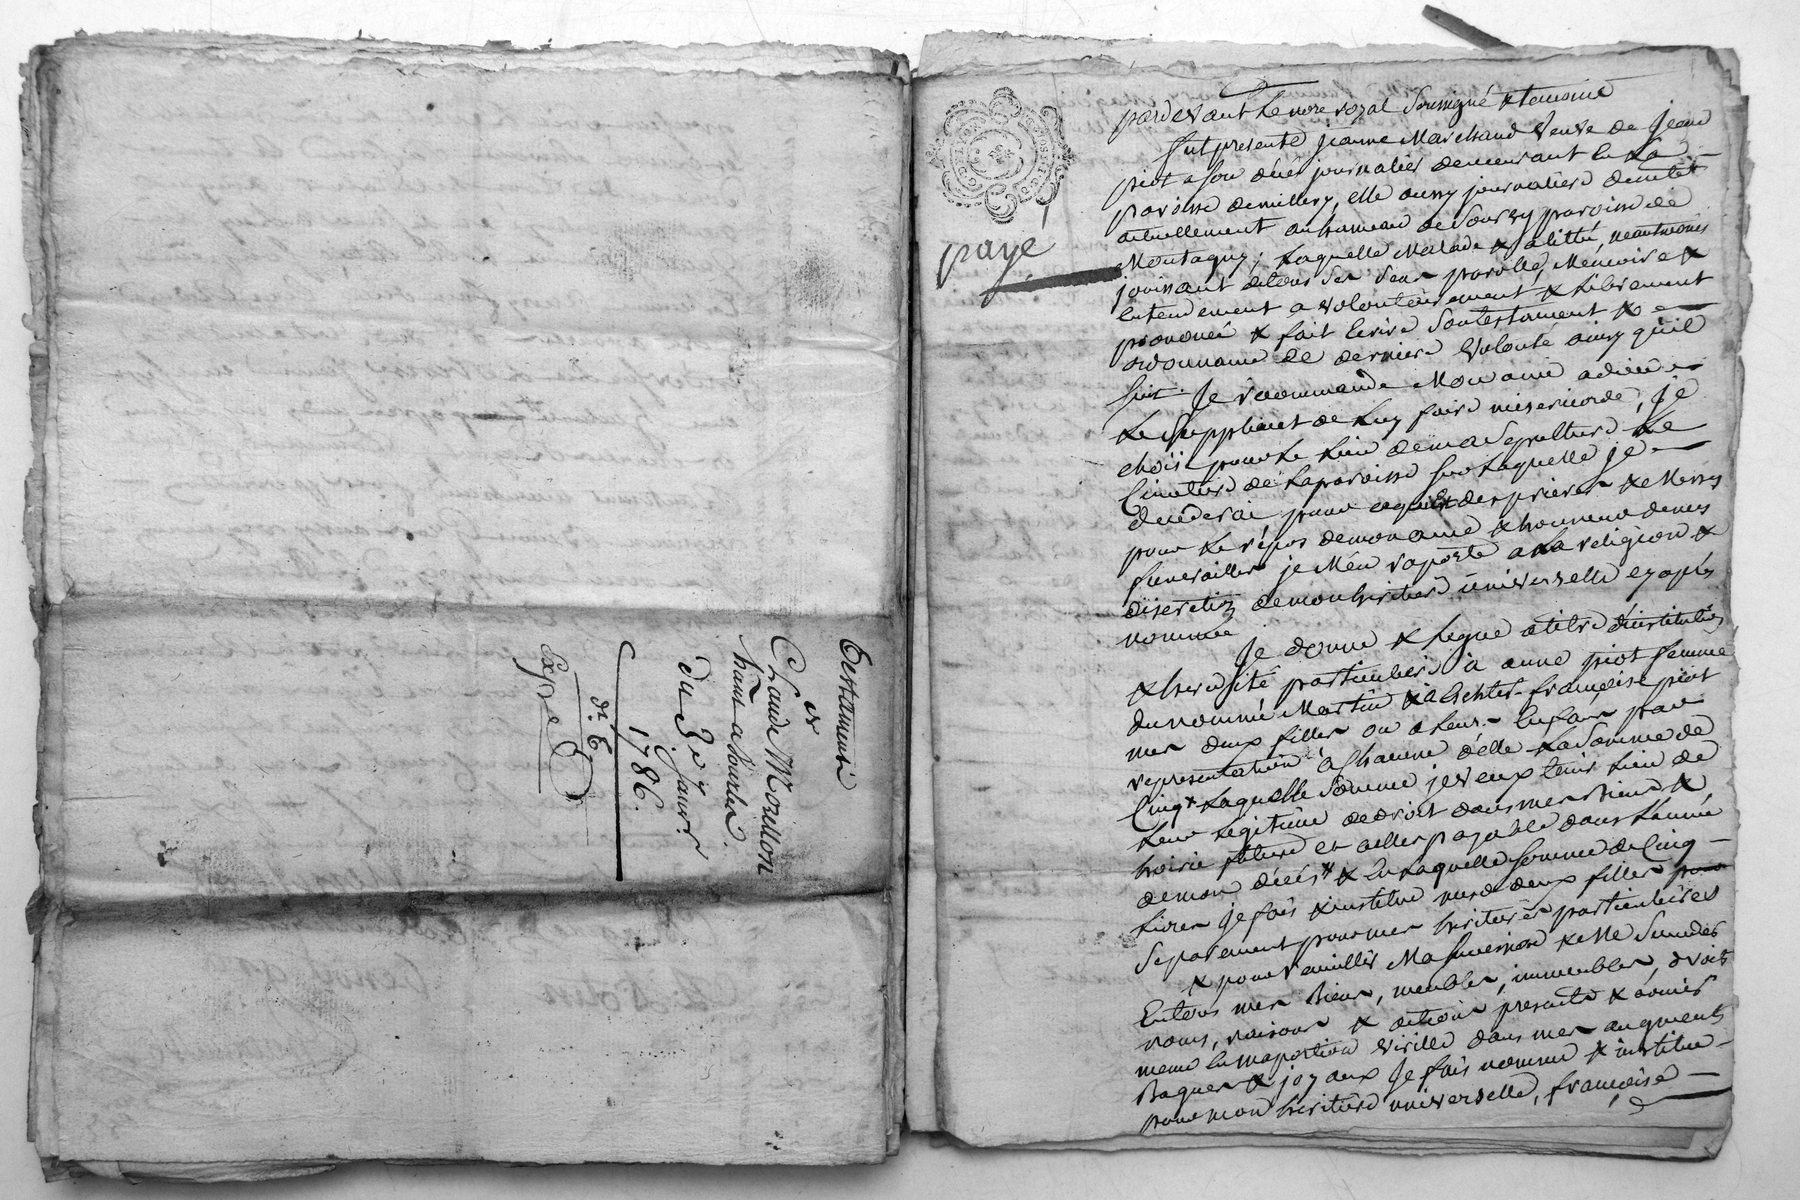 Testament
de
Claude Morillon
hãnt a Sourles
du 3e Janvr.
1786.
dt. C
Exp. e
payé
pardevant Le nore royal Soussigné & temoins
fut presente Jeanne Marchand veuve de Jean
piot a son decès journalier demeurant en La
paroisse demillery, elle aussy journaliere demte
actuellement au hameau de Sourzy paroisse de
Montagny; Laquelle Malade & alittée, neantmoins
jouissant detous ses sens parolle, Memoire &
Entendement a volontairement & Librement
prononcé & fait Ecrire Sontestament &
ordonnance de derniere volonté ainsy quil
suit. Je recommande Mon ame a dieu
Le suppliant de Luy faire misericorde, je
choisi pour Le Lieu de ma Sepulture Le
Cimetiere de Laparoisse sur Laquelle je
decederai, pour cequi est des prieres & Messes
pour Le repos demon ame & honneur demes
funerailles je Mén raporte a La religion &
discretion demon heritiere universelle cy après
nommée
Je donne & Legue atitre d'institution
& heredité particuliere à anne piot femme
du nommé Martin & à Esther françoise piot
mes deux filles ou a Leurs Enfans par
representation à Chacune d'elle La Somme de
Cinq # Laquelle Somme je veux tenir Lieu de
Leur Legitime de droit dans mes biens &
hoirie future et a elles payable dans Lannée
demon décès # & En Laquelle somme de Cinq
Livres je fais & institue mesd. deux filles
Separement pour mes heritieres particulieres
& pour recueillir Ma Succession & Me Succeder
En tous mes biens, meubles, immeubles, droits
noms, raisons & actions presents & avenir
meme En maportion virille dans mes augments
Bagues & joyaux Je fais nomme & institue
pour mon heritiere universelle, françoise